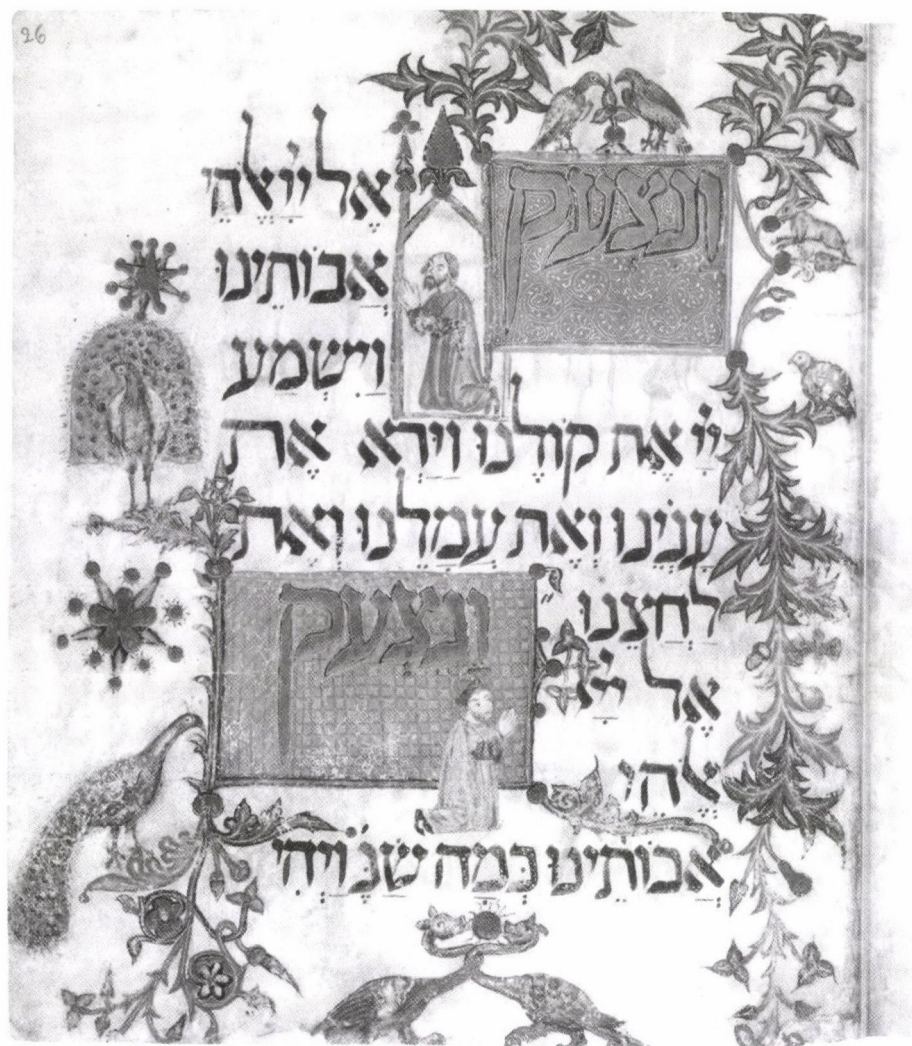 26
ונצעק אל ייי אלהי
אבותינו
וישמע
ייי את קולנו וירא את
ענינו ואת עמלנו ואת
לחצנו ונצעק
אל ייי
אלהי
אבותינו כמה שנ׳ ויהי